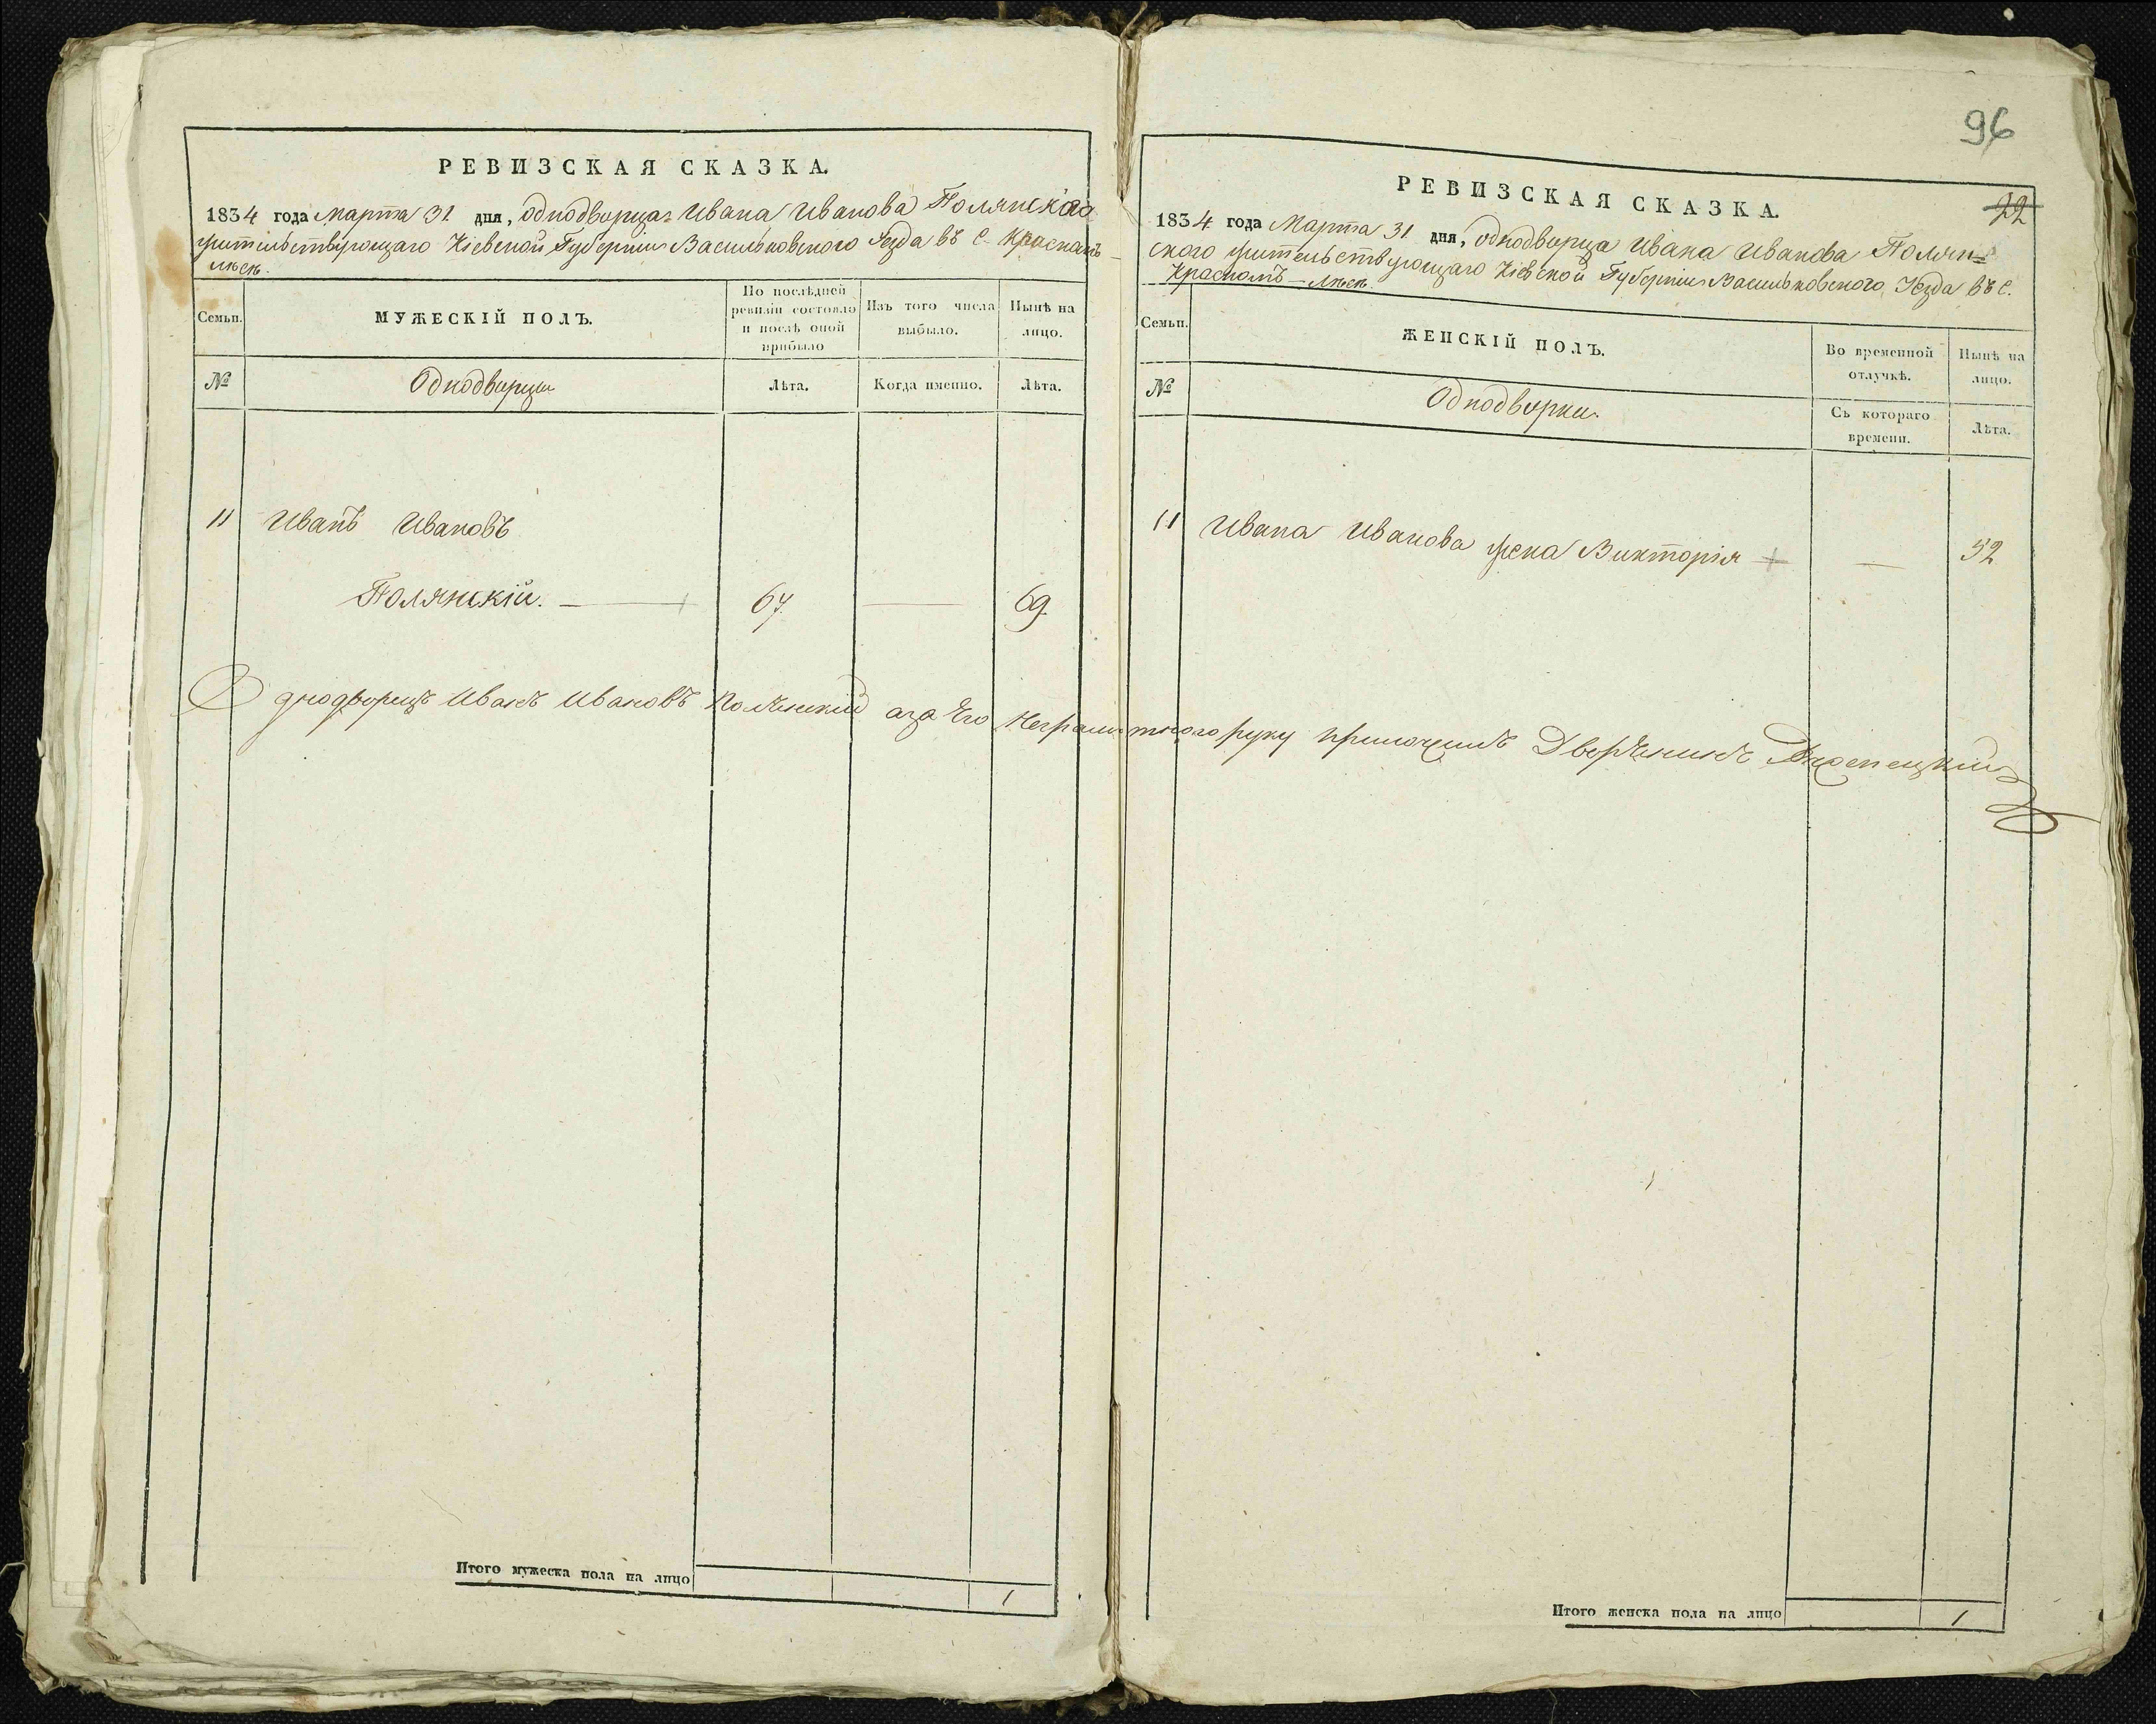 РЕВИЗСКАЯ СКАЗКА.
1834 года Марта 31 дня, однодворца Ивана Иванова Полянскаго
жительствующаго Кіевской Губерніи Васильковского Уезда въ С. Красномъ-
лѣсѣ.
Семьи.
МУЖЕСКІЙ ПОЛЪ.
По послѣдней
ревизіи состояло
и послѣ оной
прибыло
Изъ того числа
выбыло.
Нынѣ на
лицо.
№
Однодворцы
Лѣта.
Когда именно.
Лѣта.
11 Иванъ Ивановъ
Полянскій. — 67. — 69.
Итого мужеска пола на лицо 1
96
22
РЕВИЗСКАЯ СКАЗКА.
1834 года Марта 31 дня, однодворца Ивана Иванова Полян=
ского жительствующаго Кіевской Губерніи Васильковского Уезда въ С.
Красномъ-лѣсѣ.
Семьи.
ЖЕНСКІЙ ПОЛЪ.
Во временной
отлучкѣ.
Нынѣ на
лицо.
№
Однодворки.
Съ котораго
времени.
Лѣта.
11 Ивана Иванова жена Викторія — 52
Однодворецъ Иванъ Ивановъ Полянский аза Его Неграмотного руку приложилъ Дворянинъ
Итого женска пола на лицо 1